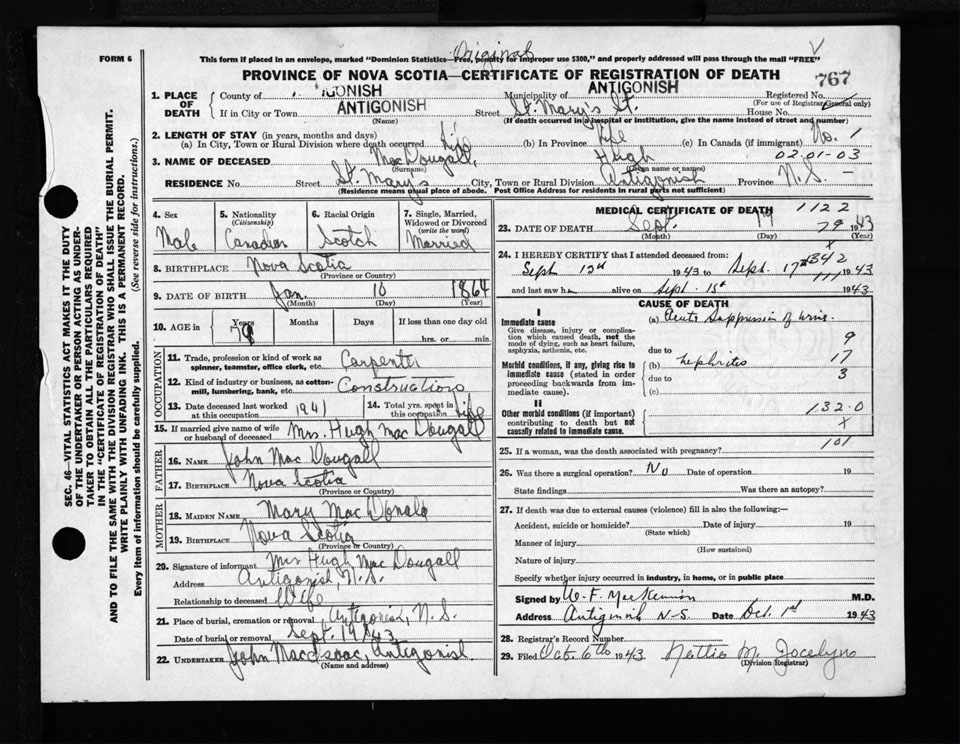 Original
FORM 6
This form if placed in an envelope, marked "Dominion Statistics—Free, penalty for improper use $300," and properly addressed will pass through the mail "FREE"
PROVINCE OF NOVA SCOTIA—CERTIFICATE OF REGISTRATION OF DEATH
767
1. PLACE OF DEATH
County of IGONISH Municipality of ANTIGONISH Registered No.
(For use of Registrar General only)
If in City or Town ANTIGONISH Street St. Mary's St. House No.
(Name) (If death occurred in hospital or institution, give the name instead of street and number)
2. LENGTH OF STAY (in years, months and days)
(a) In City, Town or Rural Division where death occurred Life (b) In Province Life (c) In Canada (if immigrant) No. 1
3. NAME OF DECEASED MacDougall, Hugh 02.01-03
(Surname) (Given name or names)
RESIDENCE No. Street St. Mary's City, Town or Rural Division Antigonish Province N.S.
(Residence means usual place of abode. Post Office Address for residents in rural parts not sufficient)
4. Sex Male
5. Nationality (Citizenship) Canadian
6. Racial Origin Scotch
7. Single, Married, Widowed or Divorced (write the word) Married
8. BIRTHPLACE Nova Scotia
(Province or Country)
9. DATE OF BIRTH Jan. 10 1864
(Month) (Day) (Year)
10. AGE in Years Months Days If less than one day old
79 hrs. or min.
OCCUPATION
11. Trade, profession or kind of work as spinner, teamster, office clerk, etc. Carpenter
12. Kind of industry or business, as cotton-mill, lumbering, bank, etc. Construction
13. Date deceased last worked at this occupation 1941
14. Total yrs. spent in this occupation Life
15. If married give name of wife or husband of deceased Mrs. Hugh Mac Dougall
FATHER
16. NAME John Mac Dougall
17. BIRTHPLACE Nova Scotia
(Province or Country)
MOTHER
18. MAIDEN NAME Mary Mac Donald
19. BIRTHPLACE Nova Scotia
(Province or Country)
20. Signature of informant Mrs Hugh Mac Dougall
Address Antigonish, N.S.
Relationship to deceased Wife
21. Place of burial, cremation or removal Antigonish, N.S.
Date of burial or removal Sept. 19 1943
22. UNDERTAKER John MacIsaac, Antigonish.
(Name and address)
MEDICAL CERTIFICATE OF DEATH 1122
23. DATE OF DEATH Sept. 17 79 1943
(Month) (Day) (Year)
24. I HEREBY CERTIFY that I attended deceased from: 342
Sept 12th 1943 to Sept. 17th 1943
and last saw h alive on Sept. 15th 1943
CAUSE OF DEATH
I
Immediate cause (a) Acute Suppression of urine.
Give disease, injury or complication which caused death, not the mode of dying, such as heart failure, asphyxia, asthenia, etc.
9
due to
Morbid conditions, if any, giving rise to immediate cause (stated in order proceeding backwards from immediate cause).
(b) nephritis 17
due to 3
(c)
II
Other morbid conditions (if important) contributing to death but not causally related to immediate cause.
132.0
X
101
25. If a woman, was the death associated with pregnancy?
26. Was there a surgical operation? No Date of operation 19
State findings Was there an autopsy?
27. If death was due to external causes (violence) fill in also the following:—
Accident, suicide or homicide? Date of injury 19
(State which)
Manner of injury
(How sustained)
Nature of injury
Specify whether injury occurred in industry, in home, or in public place
Signed by W. F. MacKinnon M.D.
Address Antigonish N-S. Date Oct. 1st 1943
28. Registrar's Record Number
29. Filed Oct. 6th 1943 Nettie M. Jocelyn
(Division Registrar)
SEC. 46—VITAL STATISTICS ACT MAKES IT THE DUTY
OF THE UNDERTAKER OR PERSON ACTING AS UNDER-
TAKER TO OBTAIN ALL THE PARTICULARS REQUIRED
IN THE "CERTIFICATE OF REGISTRATION OF DEATH"
AND TO FILE THE SAME WITH THE DIVISION REGISTRAR WHO SHALL ISSUE THE BURIAL PERMIT.
WRITE PLAINLY WITH UNFADING INK. THIS IS A PERMANENT RECORD.
Every item of information should be carefully supplied. (See reverse side for instructions.)